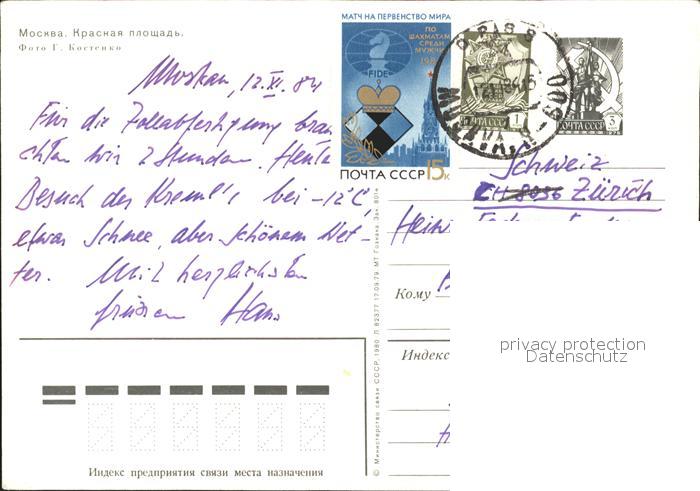 Москва. Красная площадь.
Фото Г. Костенко
Moskau, 12. XI. 84
Für die Zollabfertigung brau
chten wir 2 Stunden. Heute
Besuch des Kreml's bei -12°C,
etwas Schnee, aber schönem Wet-
ter. Mit herzlichsten
Grüssen Hans
МАТЧ НА ПЕРВЕНСТВО МИРА
ПО
ШАХМАТАМ
СРЕДИ
МУЖЧИН
FIDE
ПОЧТА СССР 15К
1
ПОЧТА СССР
3
ПОЧТА СССР
Schweiz
CH 8056 Zürich
Кому
Индекс
© Министерство связи СССР, 1980. Л 82377 17.09.79. МТ Гознака. Зак. 8014
Индекс предприятия связи места назначения
privacy protection
Datenschutz